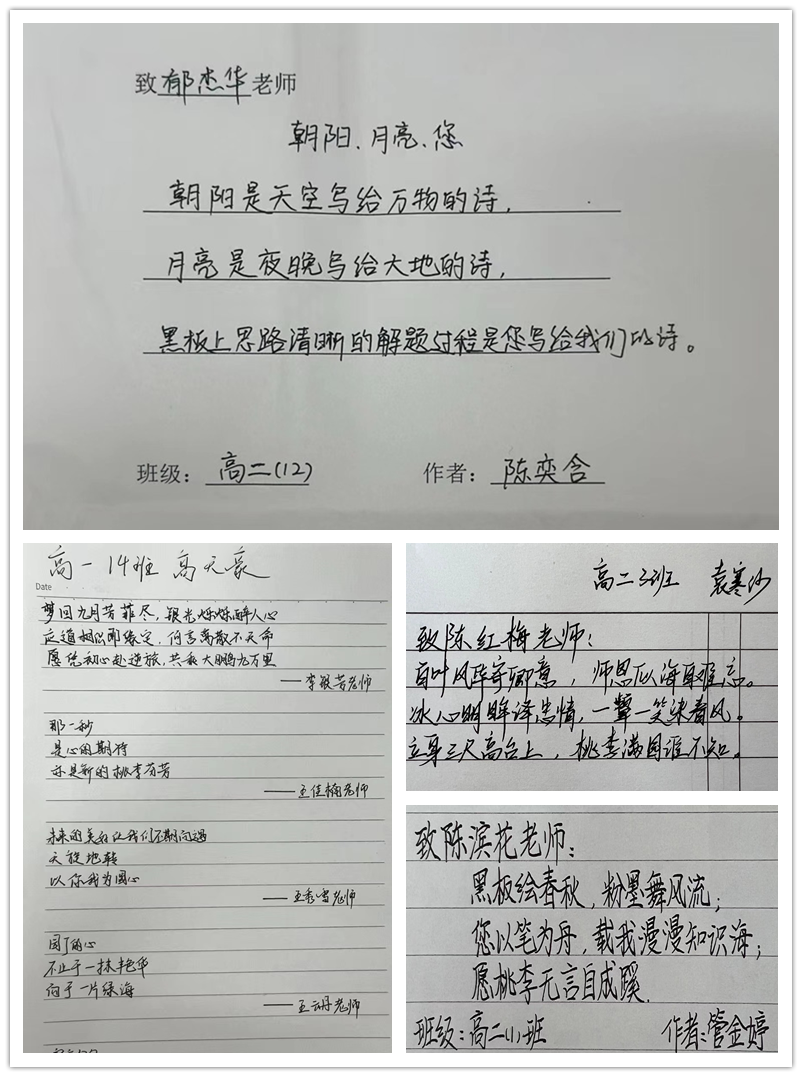 致郁杰华老师
朝阳、月亮、您
朝阳是天空写给万物的诗，
月亮是夜晚写给大地的诗，
黑板上思路清晰的解题过程是您写给我们的诗。
班级：高二(12) 作者：陈奕含
高一14班 高天豪
Date
梦回九月芳菲尽，银光烁烁醉人心
愿凭初心赴逆旅，共乘大鹏九万里
——李银芳老师
那一秒
是心的期待
亦是新的桃李芬芳
——王佳楠老师
未来的美好让我们不期而遇
天旋地转
以你我为圆心
——王秀雪老师
园丁的心
不止于一抹艳华
向于一片绿海
——王云丹老师
高二3班 袁寒沙
致陈红梅老师：
百叶风华寄卿意，师恩似海最难忘。
冰心明眸译忠情，一颦一笑沐春风。
立身三尺高台上，桃李满园谁不知。
致陈滨花老师：
黑板绘春秋，粉墨舞风流；
您以笔为舟，载我漫漫知识海；
愿桃李无言自成蹊.
班级：高二(1)班 作者：管金婷